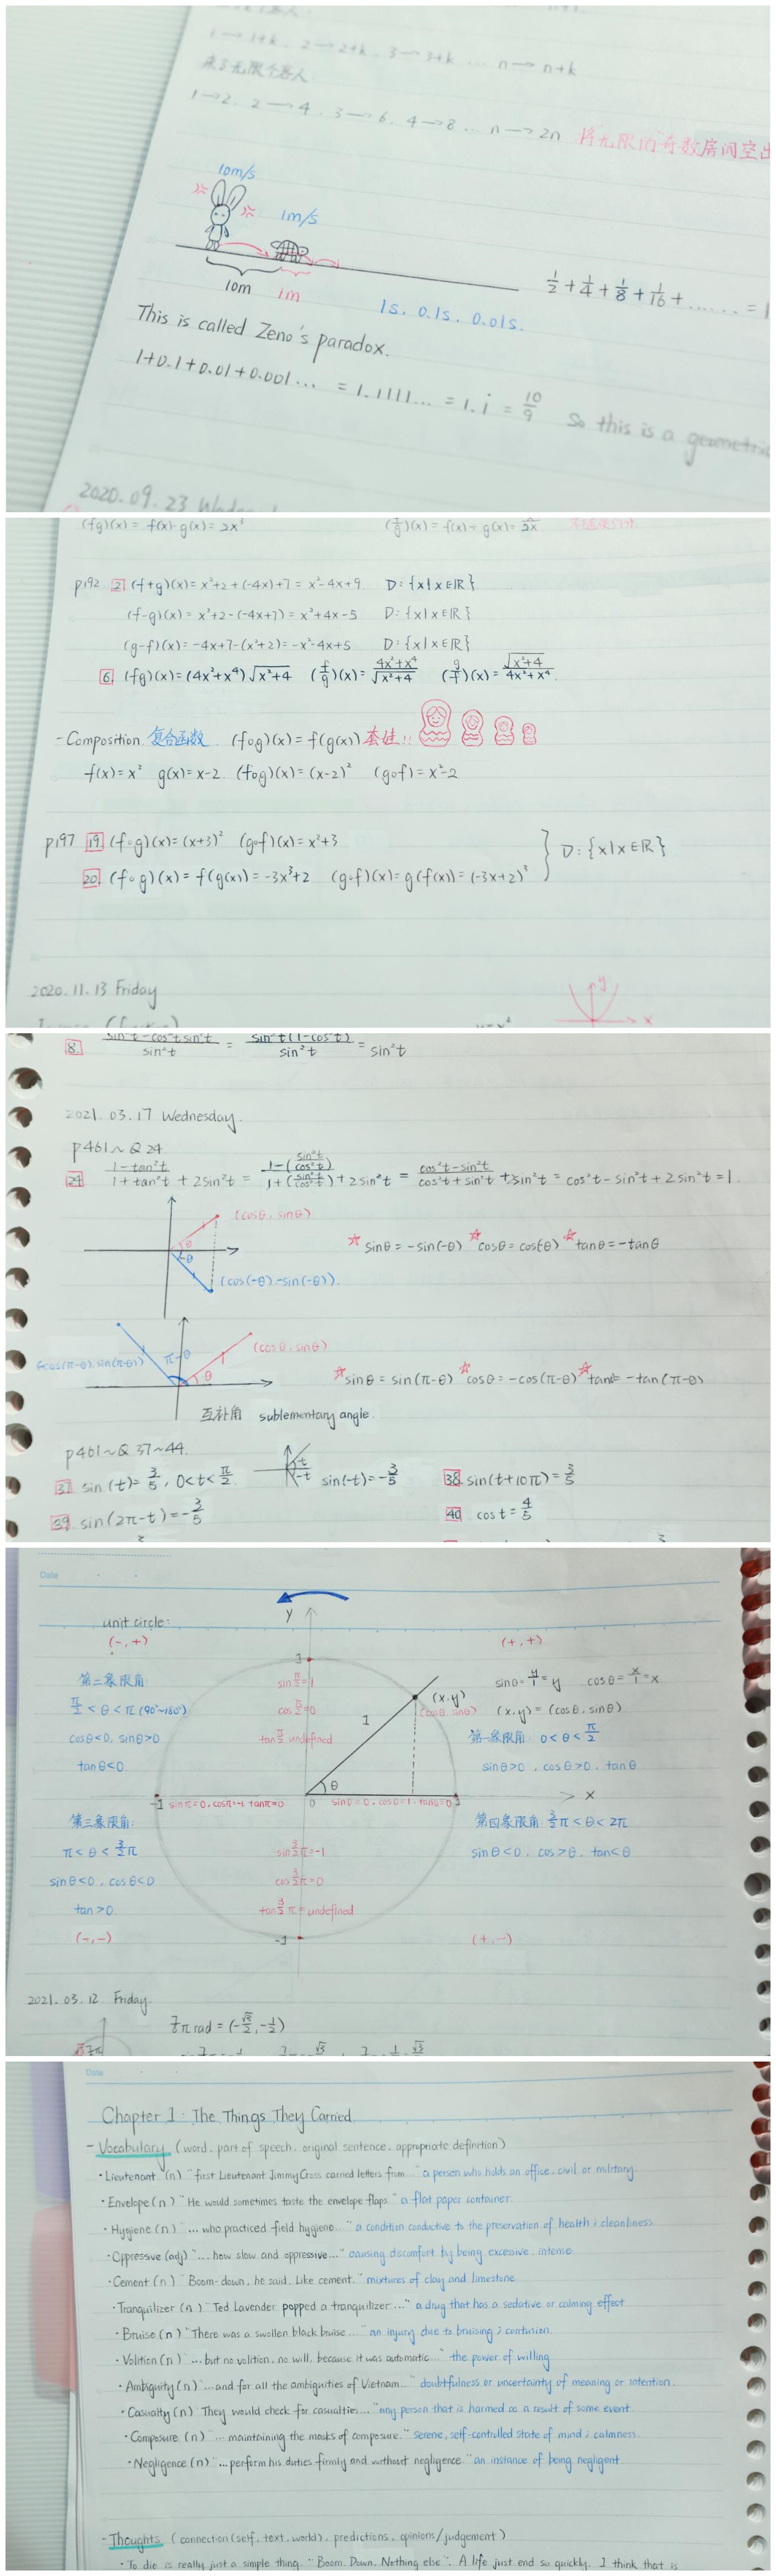 1→1+k. 2→2+k. 3→3+k ... n→n+k
来了无限个客人
1→2. 2→4. 3→6. 4→8 ... n→2n 将"无限的"奇数房间空出
10m/s
1m/s
10m
1m
1s. 0.1s. 0.01s.
1/2+1/4+1/8+1/16+...... = 1
This is called Zeno's paradox.
1+0.1+0.01+0.001... = 1.1111... = 1.i = 10/9 So this is a geometric
2020.09.23
(fg)(x) = f(x)·g(x) = 2x³
p192 2 (f+g)(x) = x²+2+(-4x)+7 = x²-4x+9 D: {x|x∈ℝ}
(f-g)(x) = x²+2-(-4x+7) = x²+4x-5 D: {x|x∈ℝ}
(g-f)(x) = -4x+7-(x²+2) = -x²-4x+5 D: {x|x∈ℝ}
6. (fg)(x) = (4x²+x⁴)√x²+4 (f/g)(x) = 4x²+x⁴/√x²+4 (g/f)(x) = √x²+4/4x²+x⁴
- Composition 复合函数 (f∘g)(x) = f(g(x)) 套娃!!
f(x) = x² g(x) = x-2. (f∘g)(x) = (x-2)² (g∘f) = x²-2
p197 19 (f∘g)(x) = (x+3)² (g∘f)(x) = x²+3
D: {x|x∈ℝ}
20. (f∘g)(x) = f(g(x)) = -3x³+2 (g∘f)(x) = g(f(x)) = (-3x+2)³
2020.11.13 Friday
y
x
8. sin²t-cos²t sin²t/sin²t = sin²t(1-cos²t)/sin²t = sin²t
2021.03.17 Wednesday.
p461~Q24
24 1-tan²t/1+tan²t + 2sin²t = 1-(sin²t/cos²t)/1+(sin²t/cos²t) + 2sin²t = cos²t-sin²t/cos²t+sin²t + 2sin²t = cos²t-sin²t+2sin²t = 1.
(cosθ, sinθ)
θ
-θ
☆ sinθ = -sin(-θ) ☆ cosθ = cos(-θ) ☆ tanθ = -tanθ
(cos(-θ), -sin(-θ)).
(-cos(π-θ), sin(π-θ))
π-θ
(cosθ, sinθ)
1
θ
☆ sinθ = sin(π-θ) ☆ cosθ = -cos(π-θ) ☆ tanθ = -tan(π-θ)
互补角 sublementary angle.
p461~Q 37~44.
37 sin(t) = 3/5, 0<t<π/2.
t
-t
sin(-t) = -3/5
38. sin(t+10π) = 3/5
39. sin(2π-t) = -3/5
40. cos t = 4/5
Date
unit circle:
y
(-,+)
(+,+)
1
第二象限角
sin π/2 = 1
sinθ = y/1 = y cosθ = x/1 = x
π/2 < θ < π (90°~180°)
cos π/2 = 0
(x,y)
(cosθ, sinθ)
(x,y) = (cosθ, sinθ)
cosθ<0, sinθ>0
tan π/2 undefined
1
第一象限角: 0<θ<π/2
tanθ<0
sinθ>0, cosθ>0, tanθ
θ
-1 sinπ=0, cosπ=-1, tanπ=0
0 sin0=0, cos0=1, tan0=0 1
x
第三象限角:
第四象限角 3/2π<θ<2π
π<θ<3/2π
sin 3/2π = -1
sinθ<0, cos>θ, tan<θ
sinθ<0, cosθ<0
cos 3/2π = 0
tan>0
tan 3/2π = undefined
(-,-)
-1
(+,-)
2021.03.12 Friday.
7/6π rad = (-√3/2, -1/2)
Date
Chapter 1: The Things They Carried
- Vocabulary (word, part of speech, original sentence, appropriate definition)
· Lieutenant (n) "first Lieutenant Jimmy Cross carried letters from..." a person who holds an office, civil or military.
· Envelope (n) "He would sometimes taste the envelope flaps." a flat paper container.
· Hygiene (n) "... who practiced field hygiene..." a condition conductive to the preservation of health; cleanliness
· Oppressive (adj) "... how slow and oppressive..." causing discomfort by being excessive, intense
· Cement (n) "Boom-down, he said. Like cement." mixtures of clay and limestone
· Tranquilizer (n) "Ted Lavender popped a tranquilizer..." a drug that has a sedative or calming effect
· Bruise (n) "There was a swollen black bruise..." an injury due to bruising; contusion.
· Volition (n) "...but no volition, no will, because it was automatic..." the power of willing
· Ambiguity (n) "...and for all the ambiguities of Vietnam.." doubtfulness or uncertainty of meaning or intention.
· Casualty (n) They would check for casualties..." any person that is harmed as a result of some event.
· Composure (n) "... maintaining the masks of composure." serene, self-controlled state of mind; calmness.
· Negligence (n) "...perform his duties firmly and without negligence." an instance of being negligent
- Thoughts (connection (self, text, world), predictions, opinions/judgement)
· To die is really just a simple thing. "Boom. Down. Nothing else". A life just end so quickly. I think that is